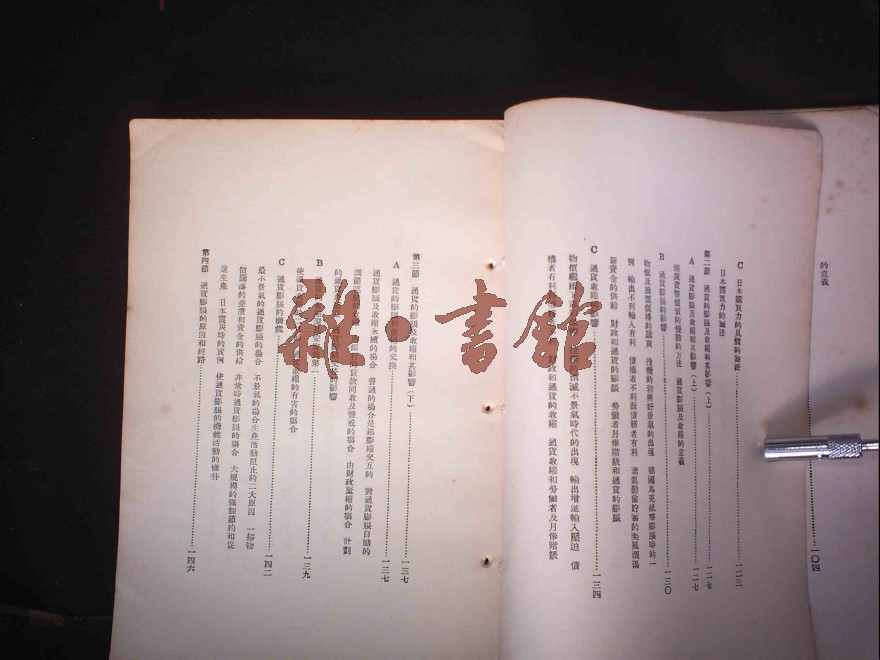 的意義
一〇四
C 日本購買力的具體的測法 一二三
日本購買力的測法
第二節 通貨的膨脹及收縮和其影響(上) 一二七
A 通貨膨脹及收縮和其影響(上) 一二七
通貨膨脹及收縮的意義
B 通貨膨脹的影響 一三〇
物價及股票價格的騰貴 投機的勃興好景氣的出現 德國馬克紙幣膨脹時的一
例 輸出不利輸入有利 債權者不利而債務者有利
新資金的供給 財政和通貨的膨脹 勞働者月俸階級和通貨的膨脹
C 通貨收縮的影響 一三四
物價 不景氣時代的出現 輸出增進輸入壓迫 債
權者有利 財政和通貨的收縮 通貨收縮和勞働者及月俸階級
第三節 通貨的膨脹及收縮和其影響(下) 一三七
A 通貨的膨脹 收縮的交換 一三七
通貨膨脹及收縮永續的場合 普通的場合是起膨縮交互的 對通貨膨脹自動的
調節 貸款回收及警戒的場合 由財政緊縮的場合 計劃
的通貨 的影響
B 通貨 第一 一三九
使通貨 收縮的有害的場合
C 通貨膨脹的機能 一四二
最不景氣的通貨膨脹的場合 不景氣的場合生產活動阻止的二大原因 一掃物
價騰 和資金的供給 非常時通貨膨脹的場合 大規模的強制節約和促
進生產 日本震災時的實例 使通貨膨脹的機能活動的條件
第四節 通貨膨脹的原因和經路 一四六
雜·書館